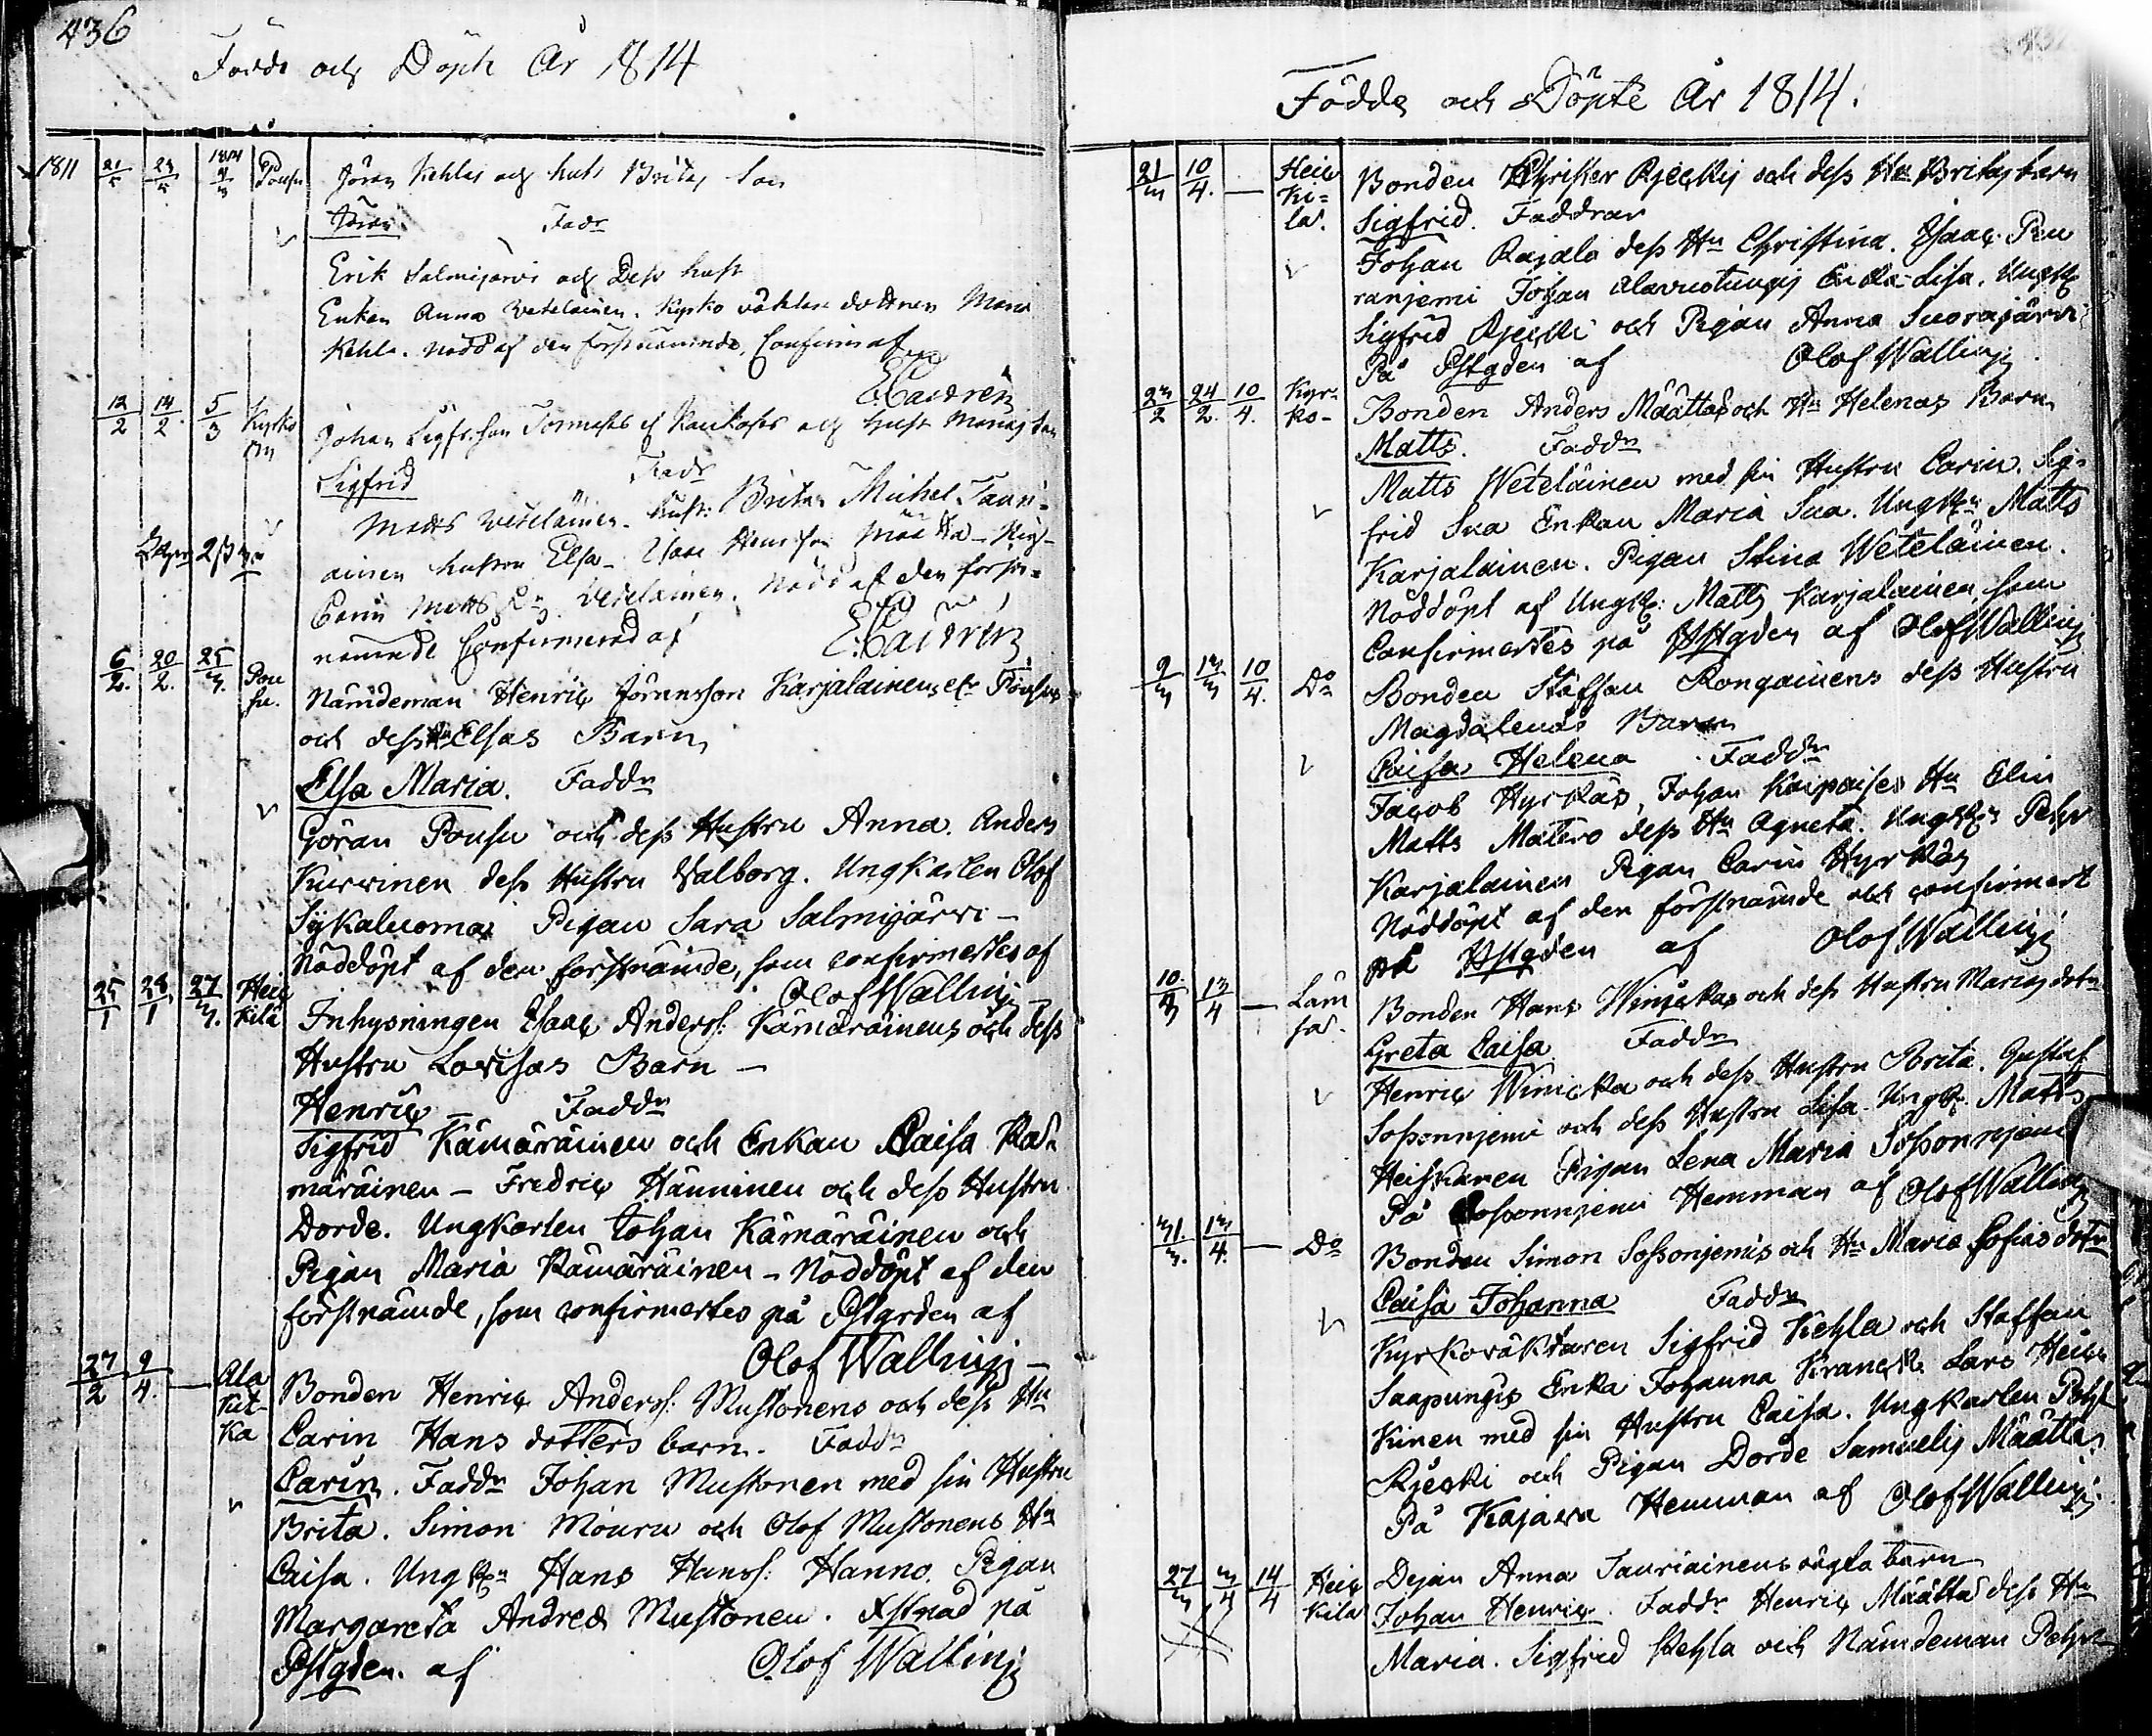 436
Födde och Döpte År 1814
1811 21/5 23/5 1814 Pousu Jöran Kehlas och hust Britas son
Jöran Fadr
Erik Salmijärvi och Dess hust
Enkan Anna Wetelainen. Kyrko väktare dottren Maria
Kehla. Nödd af den förstnämnde, Confirm af
12/2 14/2 5/3 Kyrko By Johan Sigfrsson
Sigfrid Fadr
Matts Wetelainen. Hust: Brita Michel Tauri-
ainen hustru Elsa Isac Määtta
Carin Matts Wetelainen. Nödd af den förstn-
nämnde Confirmerad af
6/2. 20/2. 25/3. Pou su. Nämdeman Henric Jöransson Karjalainens
och dess Hu Elsas Barn
Elsa Maria. Faddr
Göran Pousu och dess Hustru Anna. Anders
Kurvinen dess Hustru Valborg. Ungkarlen Olof
Sykaluoma Pigan Sara Salmijärvi –
Nöddöpt af den förstnämde, som confirmertes af
Olof Walling
25/1 28/1 27/3. Heic kilä Inhysningen Esaac Anderss: Kämäräinens och dess
Hustru Lovisas Barn –
Henric – Faddr
Sigfrid Kämäräinen och Enkan Caisa Kä-
märäinen – Fredric Hänninen och dess Hustru
Dorde. Ungkarlen Johan Kämäräinen och
Pigan Maria Kämäräinen – Nöddöpt af den
förstnämde, som confirmertes på Pstgrden af
Olof Walling –
27/2 9/4. — Ala Kit- Ka Bonden Henric Anderss: Mustonens och dess Hu
Carin Hans dotters barn. Faddr
Carin. Faddr Johan Mustonen med sin Hustru
Brita. Simon Mouru och Olof Mustonens Hu
Caisa. Ungkn Hans Hanss: Hanno. Pigan
Margareta Andred Mustonen. på
Pstgden. af Olof Walling
Födde och Döpte År 1814.
21/3 10/4. — Heic Ki= lä. Bonden Rjeckij och dess Hu Britas barn
Sigfrid. Faddrar
Johan Rajala dess Hu Christina. Esaac Peu
ranjemi Johan Alavuotungij Enka Lisa. Ungk
Sigfrid Rjecki och Pigan Anna Suorajärvi
På Pstgden af Olof Walling
23/2 24/2. 10/4. Kyr- ko- Bonden Anders Määttas och Hu Helenas Barn
Matts. Faddr
Matts Weteläinen med sin Hustru Carin. Sig-
frid Sua Enkan Maria Sua. Ungkn Matts
Karjalainen. Pigan Stina Weteläinen.
Nöddöpt af Ungk: Matts Karjalainen, som
Confirmertes på Pstgden af Olof Walling
9/3 13/3 10/4. Do Bonden Staffan Rongainens dess Hustru
Magdalenas Barn
Caisa Helena. Faddr
Jacob Hyrkäs, Johan Karpaises Hu Elin
Matts Matero dess Hu Agneta. Ungkn Pehr
Karjalainen Pigan Carin Hyrkäs
Nöddöpt af den förstnämde och confirmert
på Pstgden af Olof Walling
10/3 13/4 — Läm sä. Bonden Hans Winickas och dess Hustru Marias dotr
Greta Caisa Faddr
Henric Winicka och dess Hustru Brita. Gustaf
Sossonnjemi och dess Hustru Lisa. Ungk. Matts
Heiskanen Pigan Lena Maria Sossonnjemi
På Sossonnjemi Hemman af Olof Walling
31/3. 13/4. — Do Bonden Simon Sossonjemis och Hu Maria Sofias dotr
Caisa Johanna Faddr
Kyrkoväktaren Sigfrid Kehla och Staffan
Saapungis Enka Johanna Kranck Lars Heic
kinen med sin Hustru Caisa. Ungkarlen Pehr
Rjecki och Pigan Dorde Samuels Määtta
På Kajava Hemman af Olof Walling
27/3 3/4 14/4 Heic kilä Pigan Anna Tauriainens oägta barn
Johan Henric. Faddr Henric Määttä dess Hu
Maria. Sigfrid Kehla och Nämdeman Pehr